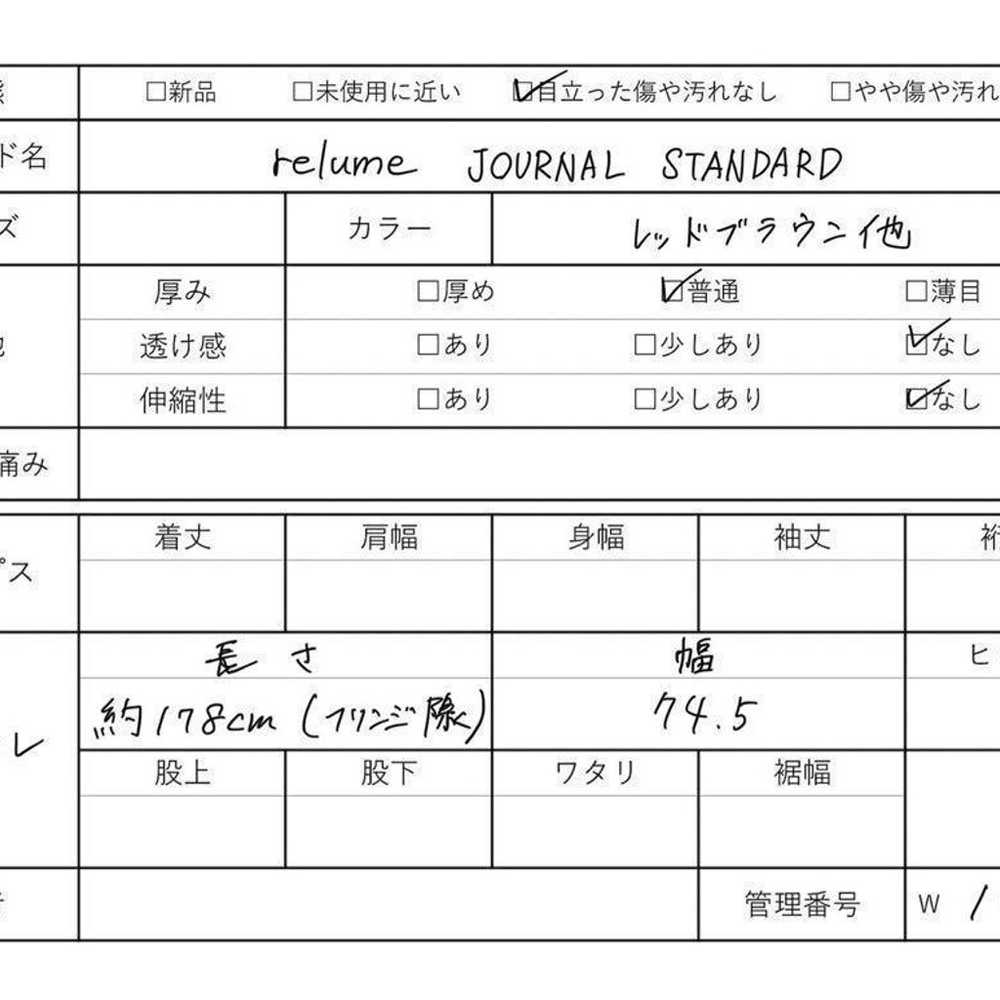 態 □新品 □未使用に近い ☑目立った傷や汚れなし □やや傷や汚れ
ド名 relume JOURNAL STANDARD
ズ カラー レッドブラウン他
厚み □厚め ☑普通 □薄目
地 透け感 □あり □少しあり ☑なし
伸縮性 □あり □少しあり ☑なし
痛み
着丈 肩幅 身幅 袖丈 裄
プス
長さ 幅 ヒ
約178cm (フリンジ除く) 74.5
レ
股上 股下 ワタリ 裾幅
管理番号 W 1